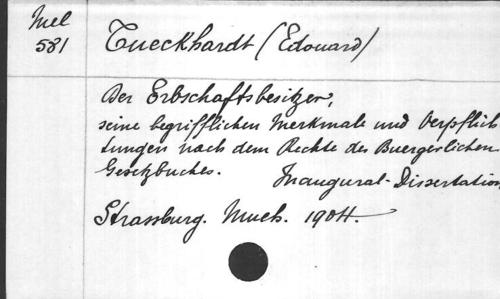 Mel
581
Tueckhardt (Edouard)
Der Erbschaftsbesitzer,
seine begrifflichen Merkmale und Verpflich
tungen nach dem Rechte des Buergerlichen
Gesetzbuches. Inaugural-Dissertation
Strassburg. Mueh. 1904.